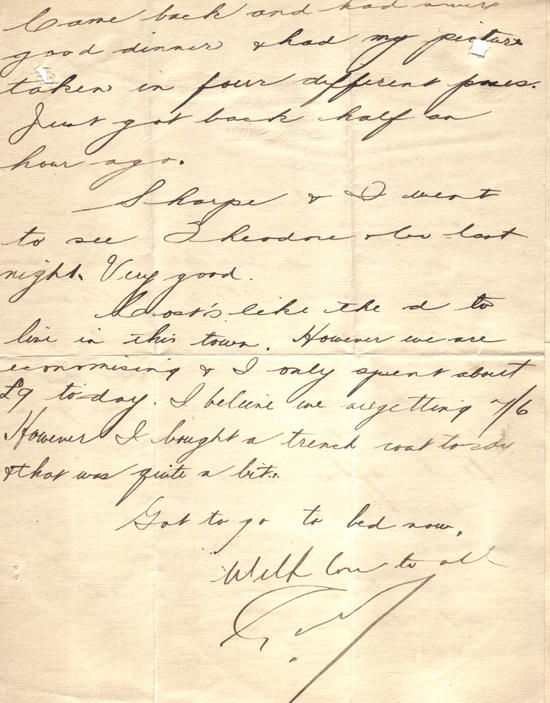 Came back and had
good dinner & had my picture
taken in four different poses.
Just got back half an
hour ago.
Sharpe & I went
to see Theodore & Co last
night. Very good.
Costs like the d to
live in this town. However we are
economising & I only spent about
£9 to-day. I believe we are getting 7/6
However I bought a trench coat to-day
& that was quite a bit.
Got to go to bed now.
With love to all